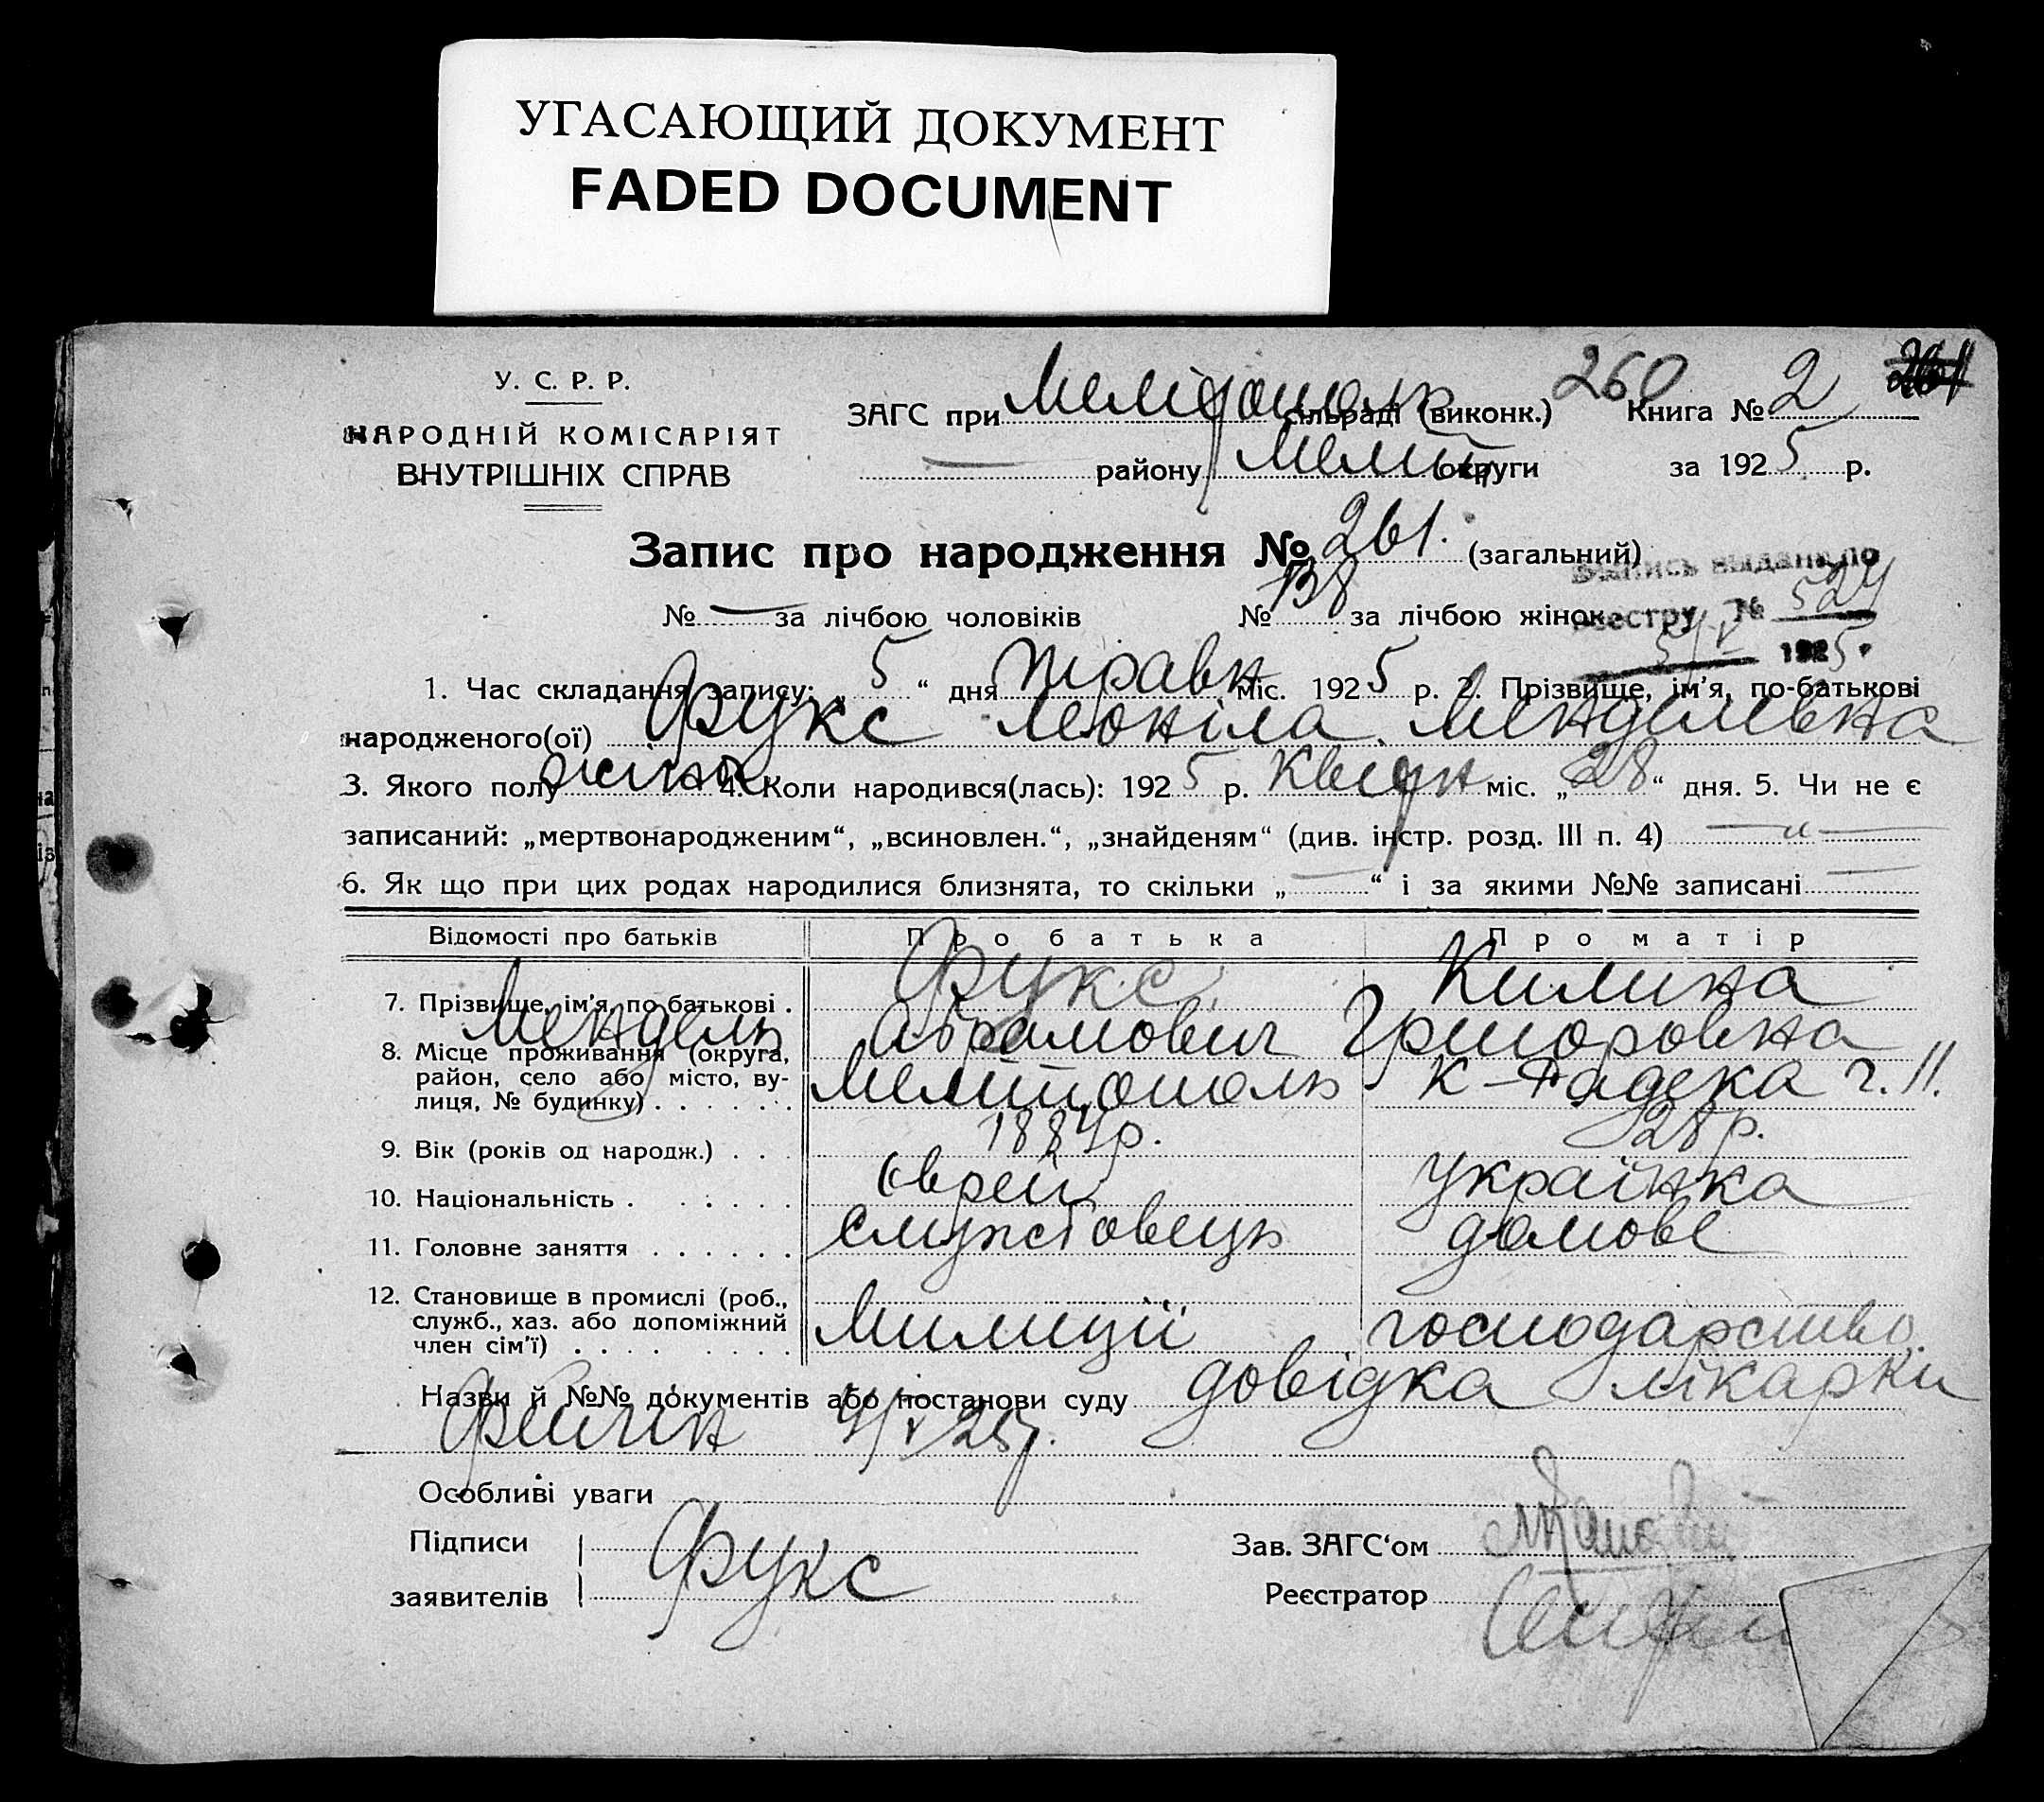 УГАСАЮЩИЙ ДОКУМЕНТ
FADED DOCUMENT
У. С. Р. Р.
НАРОДНІЙ КОМІСАРІЯТ
ВНУТРІШНІХ СПРАВ
260
ЗАГС при Мелітополь сільраді (виконк.) Книга № 2
— району Меліт округи за 1925 р.
Запис про народження № 261. (загальний)
№ — за лічбою чоловіків № 138 за лічбою жінок
Випись видана по
реестру № 524
5/V 1925
1. Час складання запису: „ 5 “ дня травн міс. 1925 р. 2. Прізвище, ім'я, по-батькові
народженого(ої) Фукс Леоніла Менделевна
3. Якого полу жіноч 4. Коли народився(лась): 1925 р. Квітн міс. „ 28 “ дня. 5. Чи не є
записаний: „мертвонародженим“, „всиновлен.“, „знайденям“ (див. інстр. розд. III п. 4) — „ —
6. Як що при цих родах народилися близнята, то скільки „ — “ і за якими №№ записані —
Відомості про батьків Про батька Про матір
7. Прізвище, ім'я, по батькові . Фукс Килина
Мендель Абрамович Григоровна
8. Місце проживання (округа,
район, село або місто, ву-
лиця, № будинку) . . . . . . Мелітополь К-Радека ч. 11.
9. Вік (років од народж.) . . . 1884р. 28 р.
10. Національність . . . . . . Єврей Українка
11. Головне заняття . . . . . . Службовець домове
12. Становище в промислі (роб.,
служб., хаз. або допоміжний
член сім'ї) . . . . . . . . Милиції господарство
Назви й №№ документів або постанови суду довідка лікарки
4/V 25р.
Особливі уваги
Підписи
заявителів
Фукс
Зав. ЗАГС'ом
Реєстратор